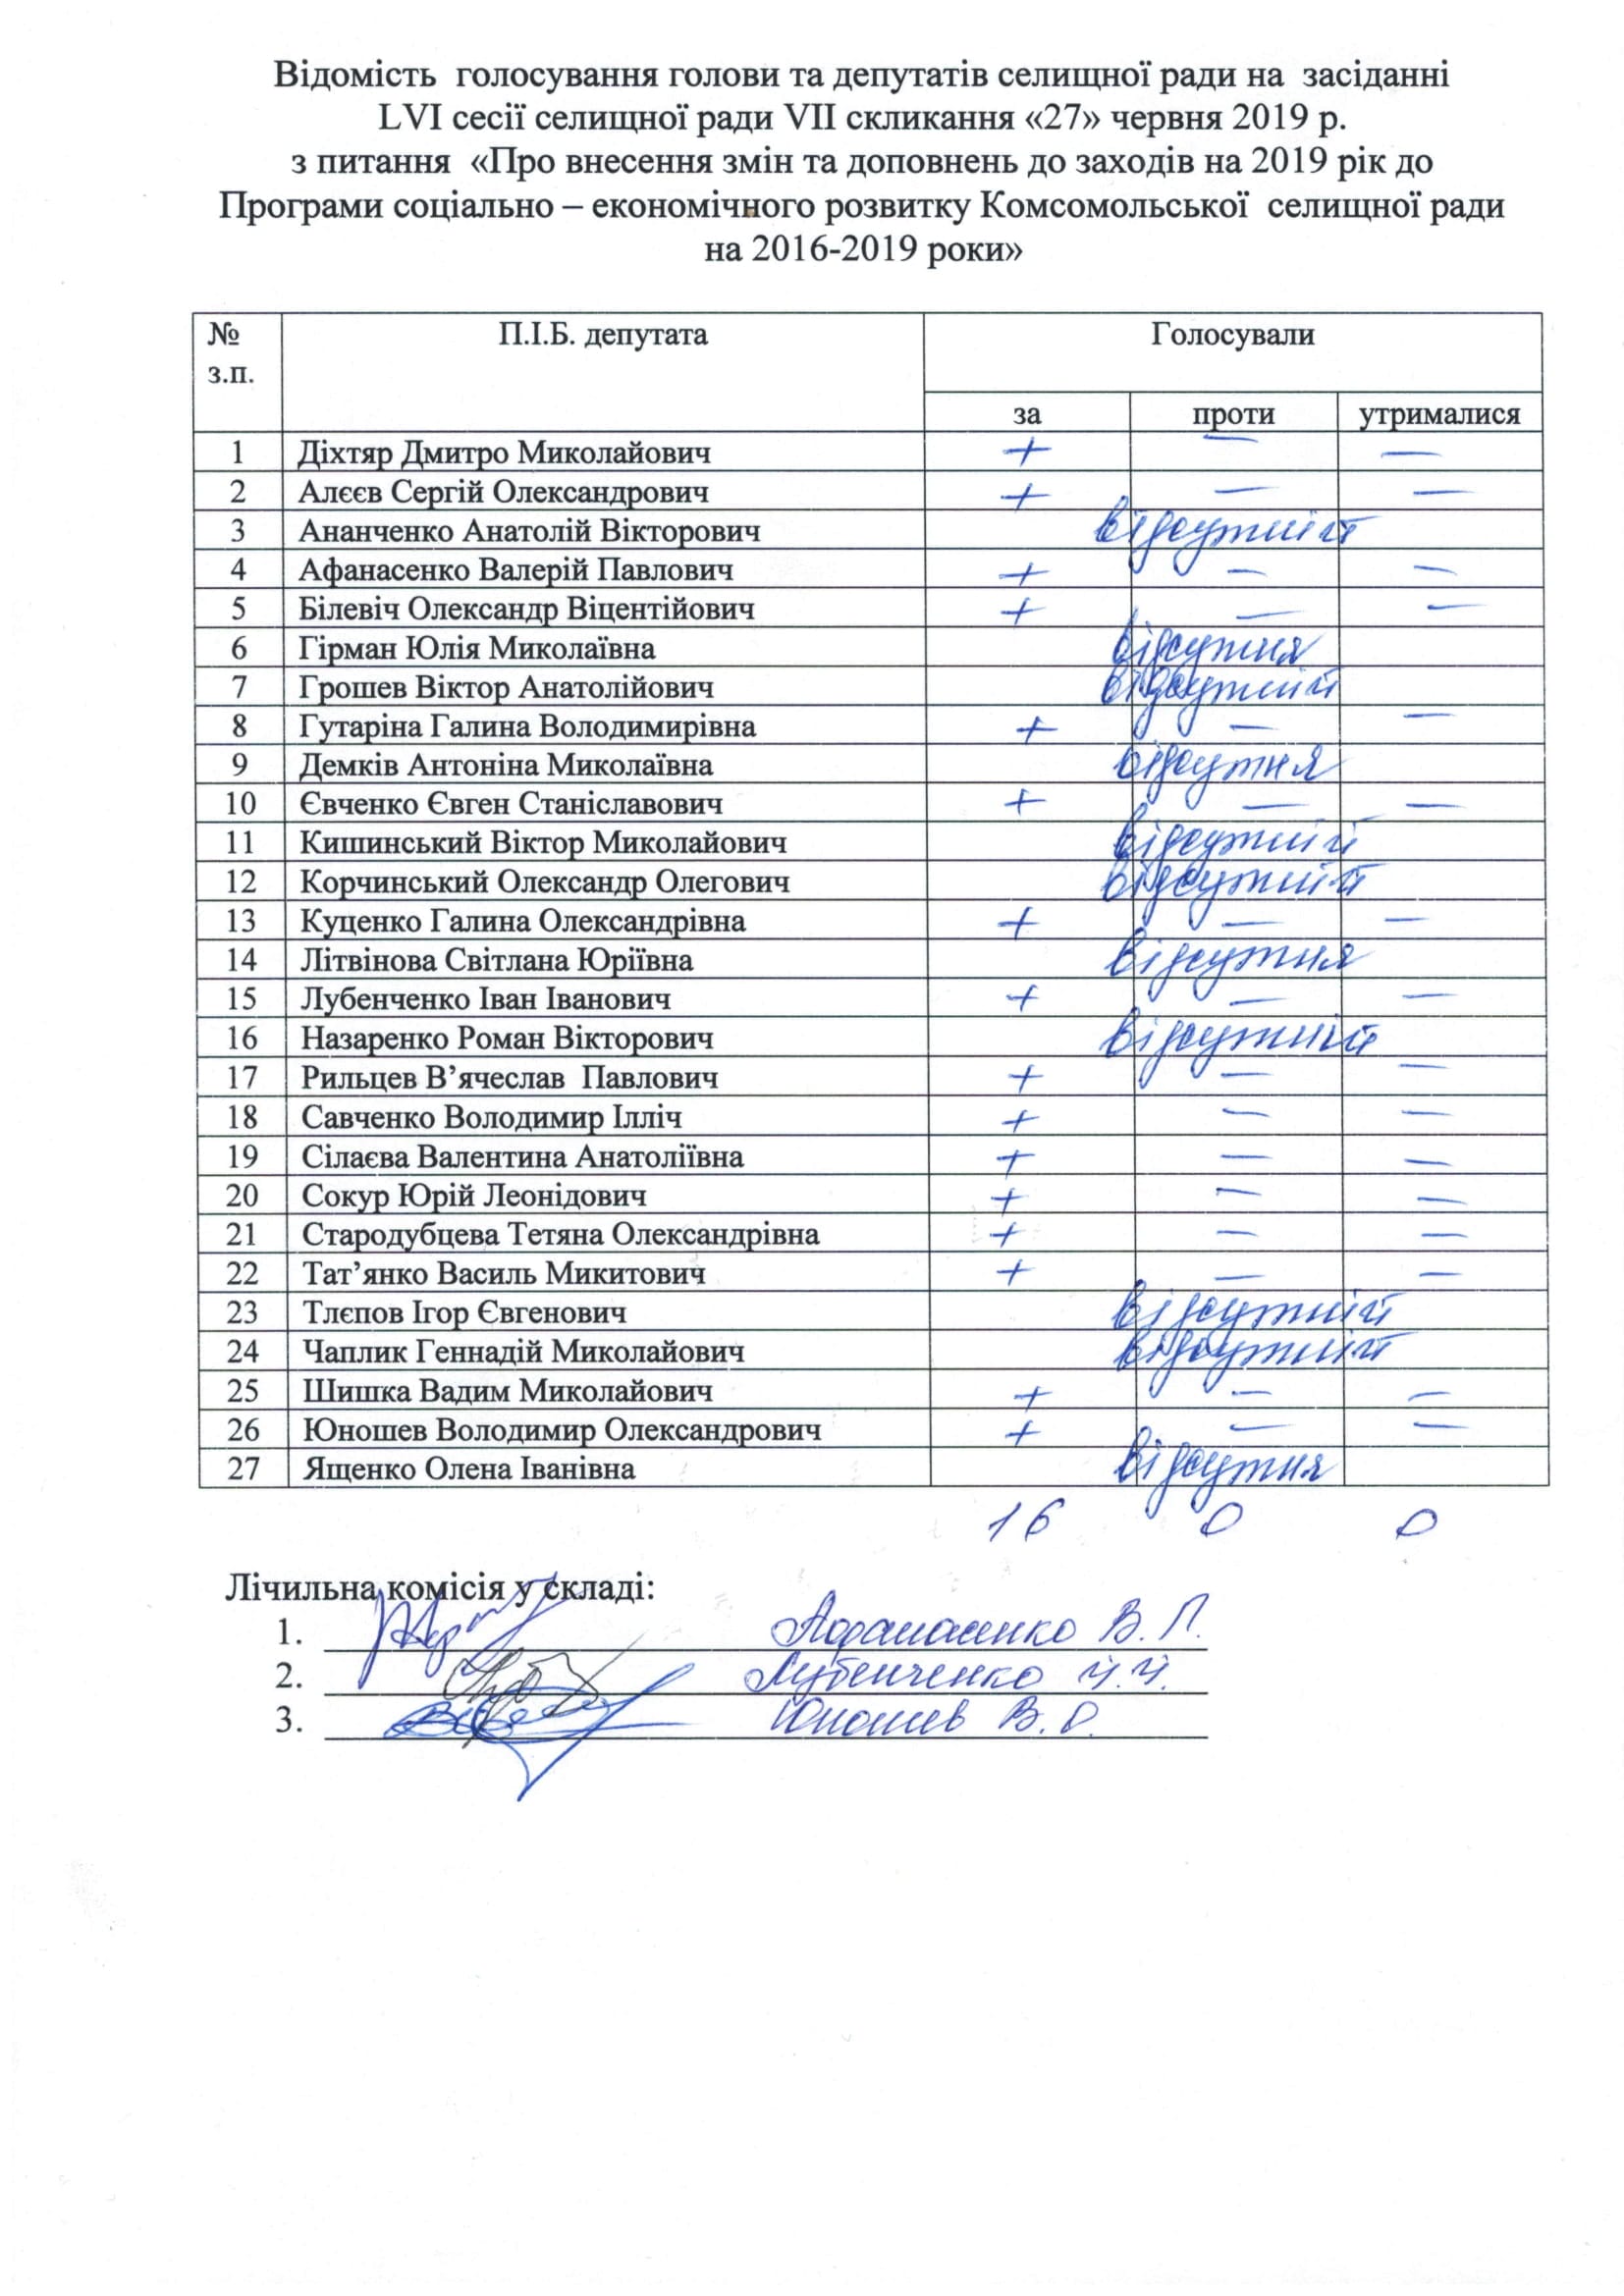 Відомість голосування голови та депутатів селищної ради на засіданні
LVI сесії селищної ради VII скликання «27» червня 2019 р.
з питання «Про внесення змін та доповнень до заходів на 2019 рік до
Програми соціально – економічного розвитку Комсомольської селищної ради
на 2016-2019 роки»
№ з.п. П.І.Б. депутата Голосували
за проти утрималися
1 Діхтяр Дмитро Миколайович + — —
2 Алєєв Сергій Олександрович + — —
3 Ананченко Анатолій Вікторович відсутній
4 Афанасенко Валерій Павлович + — —
5 Білевіч Олександр Віцентійович + — —
6 Гірман Юлія Миколаївна відсутня
7 Грошев Віктор Анатолійович відсутній
8 Гутаріна Галина Володимирівна + — —
9 Демків Антоніна Миколаївна відсутня
10 Євченко Євген Станіславович + — —
11 Кишинський Віктор Миколайович відсутній
12 Корчинський Олександр Олегович відсутній
13 Куценко Галина Олександрівна + — —
14 Літвінова Світлана Юріївна відсутня
15 Лубенченко Іван Іванович + — —
16 Назаренко Роман Вікторович відсутній
17 Рильцев В’ячеслав Павлович + — —
18 Савченко Володимир Ілліч + — —
19 Сілаєва Валентина Анатоліївна + — —
20 Сокур Юрій Леонідович + — —
21 Стародубцева Тетяна Олександрівна + — —
22 Тат’янко Василь Микитович + — —
23 Тлєпов Ігор Євгенович відсутній
24 Чаплик Геннадій Миколайович відсутній
25 Шишка Вадим Миколайович + — —
26 Юношев Володимир Олександрович + — —
27 Ященко Олена Іванівна відсутня
16 0 0
Лічильна комісія у складі:
1. Афанасенко В. П.
2. Лубенченко И.И.
3. Юношев В. О.